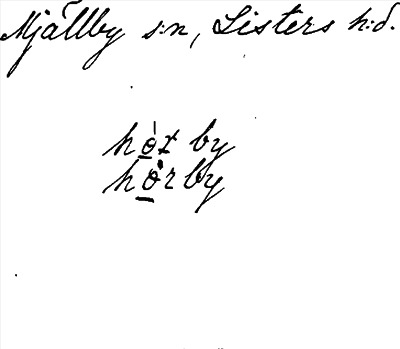 Mjällby s:n, Listers h:d.
hò̲ṯ by
hò̲rby